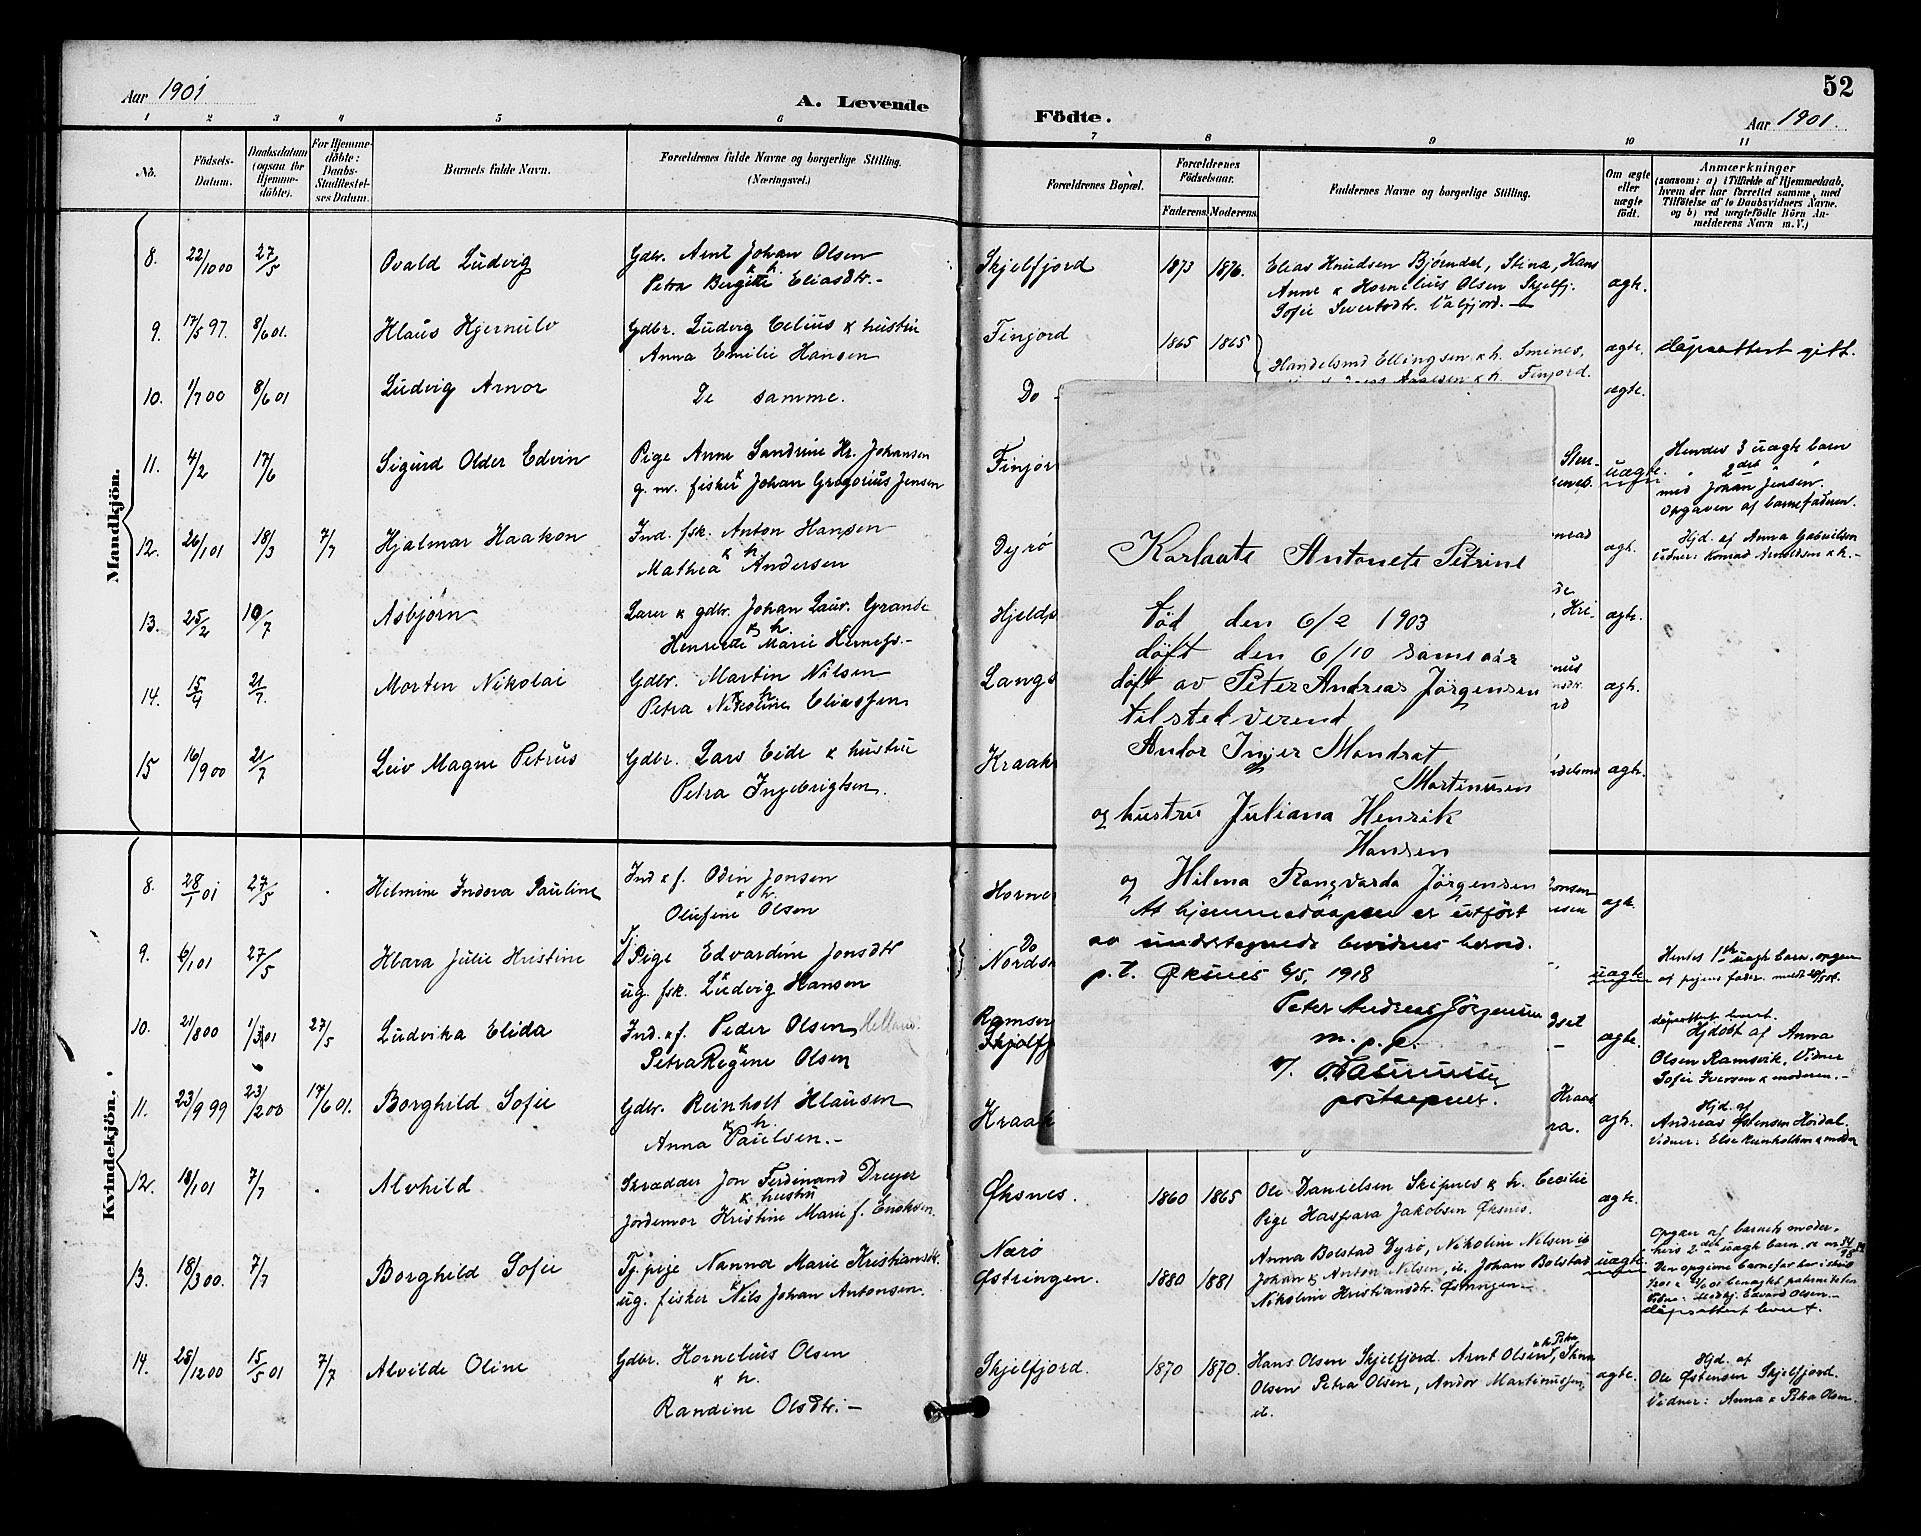 Aar 1901
A. Levende
Födte.
52
Aar 1901.
1 2 3 4 5 6 7 8 9 10 11
No.
Födsels-
Datum.
Daabsdatum
(ogsaa for
Hjemme-
döbte).
For Hjemme-
döbte:
Daabs-
Stadfæstel-
ses Datum.
Barnets fulde Navn.
Forældrenes fulde Navne og borgerlige Stilling.
(Næringsvei.)
Forældrenes Bopæl.
Forældrenes
Födselsaar.
Faderens. Moderens.
Faddernes Navne og borgerlige Stilling.
Om ægte
eller
uægte
födt.
Anmærkninger
(saasom: a) i Tilfælde af Hjemmedaab,
hvem der har forrettet samme, med
Tilföielse af to Daabsvidners Navne.
og b) ved uægtefödte Börn An-
melderens Navn m. V.)
Mandkjön.
8. 22/10 00 27/5 Ovald Ludvig Gdbr. Arnt Johan Olsen Skjelfjord 1873 1876. Elias Knudsen Bjørndal, Stina, Hans
& h. Petra Bergitte Eliasdtr.- Anne & Hornelius Olsen Skjelfj. ægte.
Sofie Sivertsdtr. Valfjord.
9. 17/5 97. 8/6 01. Klaus Hjernulv Gdbr. Ludvig Celius & hustru Finjord 1865 1865
Anna Emilie Hansen Handelsmd Ellingsen & h. Smines, ægte. dåpsattest gitt.
10. 1/7 00 8/6 01 Ludvig Arnor De samme. Do - & h. Finjord. ægte.
11. 4/2 17/6 Sigurd Older Edvin Pige Anne Sandrine Kr. Johansen Finjor uægte Hendes 3 uægte barn
g. m. fisker Johan Gregorius Jensen 2det
med Johan Jensen.
Opgaven af barnefaderen.
12. 26/1 01 18/3 7/7 Hjalmar Haakon Ind. fsk. Anton Hansen Dyrö ægte. Hjd. af Anna Gabrielsen
& h. Mathea Andersen Vidner: Konrad Arnoldsen & h.-
13. 25/2 10/7 Asbjörn Lærer & gdbr. Johan Laur. Grande Hjelds ægte.
& h. Henriette Marie
14. 15/4 21/7. Morten Nikolai Gdbr. Martin Nilsen Langs ægte.
& h. Petra Nikoline Eliassen
15 16/9 00 21/7 Leiv Magne Petrus Gdbr. Lars Eide & hustru Kraak ægte.
Petra Ingebrigtsen.
Karlaate Antonete Petrine
Född den 6/2 1903
døft den 6/10 samaaår
døft av Peter Andreas Jørgensen
tilstedverend
Andor Injer Mandrat
Martinusen
og hustru Juliana Henrik
Hansen
og Hilma Rangvarda Jørgensen
At hjemmedaapen er utført
av undertegnede bevidnes herved.
p. t. Øksnes 6/5, 1918
Peter Andreas Jørgensen
m. p. p.
postaapner.
Kvindekjön.
8. 28/1 01 27/5 Helmine Indova Pauline Ind & f. Odin Jonsen Horne ægte.
& h. Olufine Olsen
9. 6/1 01 27/5 Klara Julie Kristine Tj. Pige Edvardine Jonsdtr Do uægte
ug. fsk. Ludvig Hansen Nords
10. 21/8 00 1/3 01 27/5 Ludvika Elida Ind. & f. Peder Olsen Ramsv ægte. dåpsattest levert.
& Petra Regine Olsen Skjelfj Hjdøbt af Anna
Olsen Ramsvik, Vidner
Sofie Iversen & moderen.-
11. 23/9 99 23/2 00 17/6 01. Borghild Sofie Gdbr. Reinholt Klausen Kraak ægte. Hjd. af
& h. Anna Paulsen.- Andreas Østensen Hovdal.
Vidner: Else Reinholtsen & moder
12. 18/1 01 7/7 Alvhild Skrædder Jon Ferdinand Dreyer Øksnes. 1860 1865 Ole Danielsen Skipnes & h. Cecilie ægte.
& hustru Jordemor Kristine Marie f. Enoksen. Pige Kaspara Jakobsen Øksnes.
13. 18/3 00. 7/7 Borghild Sofie Tj. pige Nanna Marie Kristiansdtr. Nærö Anna Bolstad Dyrö, Nikoline Nilsen ib uægte Opgav af barnets moder,
ug. fisker Nils Johan Antonsen. Østringen. 1880 1881 Johan & Anton Nilsen, ib. Johan Bolstad hvis 2det uægte barn.
Nikoline Kristiansdtr. Østringen dåpsattest levert.
14. 28/12 00 15/5 01 7/7 Alvilde Oline Gdbr. Hornelius Olsen Skjelfjord. 1870 1870. Hans Olsen Skjelfjord. Arnt Olsen & h. Petra, Stina ægte. Hjd. af
& h. Randine Olsdtr.- Olsen Petra Olsen, Andor Martinussen Ole Østensen Skjelfjord.
ib. Vidner: Anna & Petra Olsen.